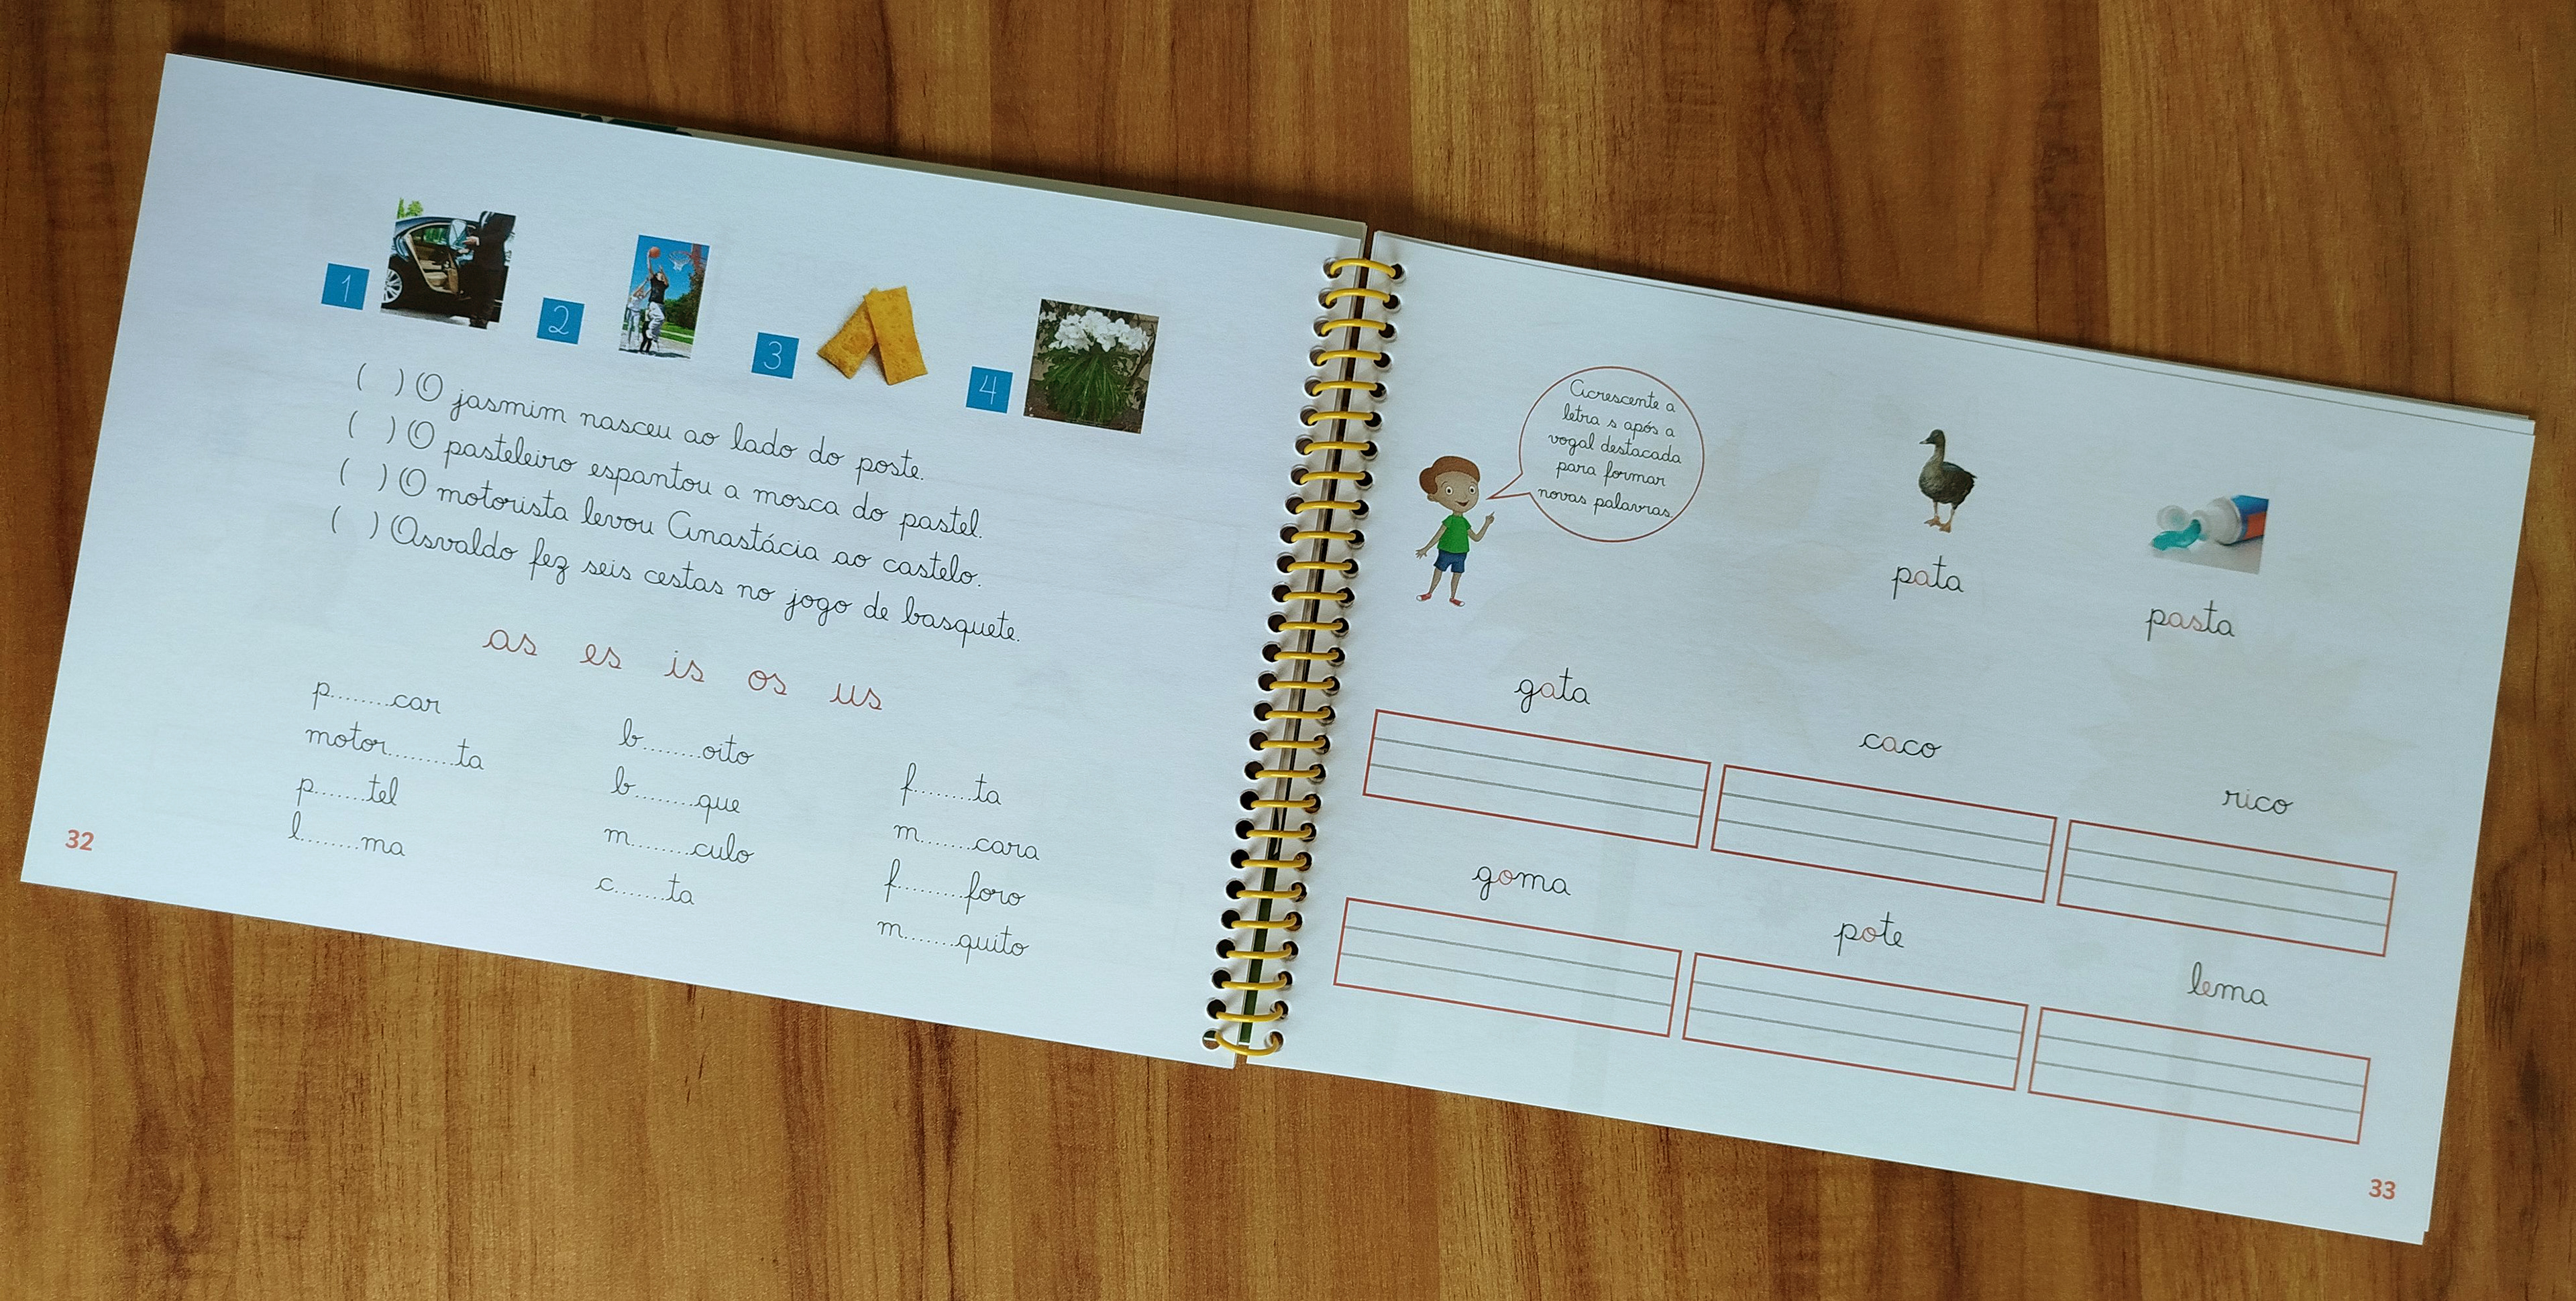 1
2
3
4
( ) O jasmim nasceu ao lado do poste.
( ) O pasteleiro espantou a mosca do pastel.
( ) O motorista levou Anastácia ao castelo.
( ) Osvaldo fez seis cestas no jogo de basquete.
as es is os us
p........car
motor.........ta
p.......tel
l........ma
b........oito
b........que
m........culo
c.......ta
f........ta
m.......cara
f.........foro
m.......quito
32
Acrescente a
letra s após a
vogal destacada
para formar
novas palavras.
pata
pasta
gata
caco
rico
goma
pote
lema
33